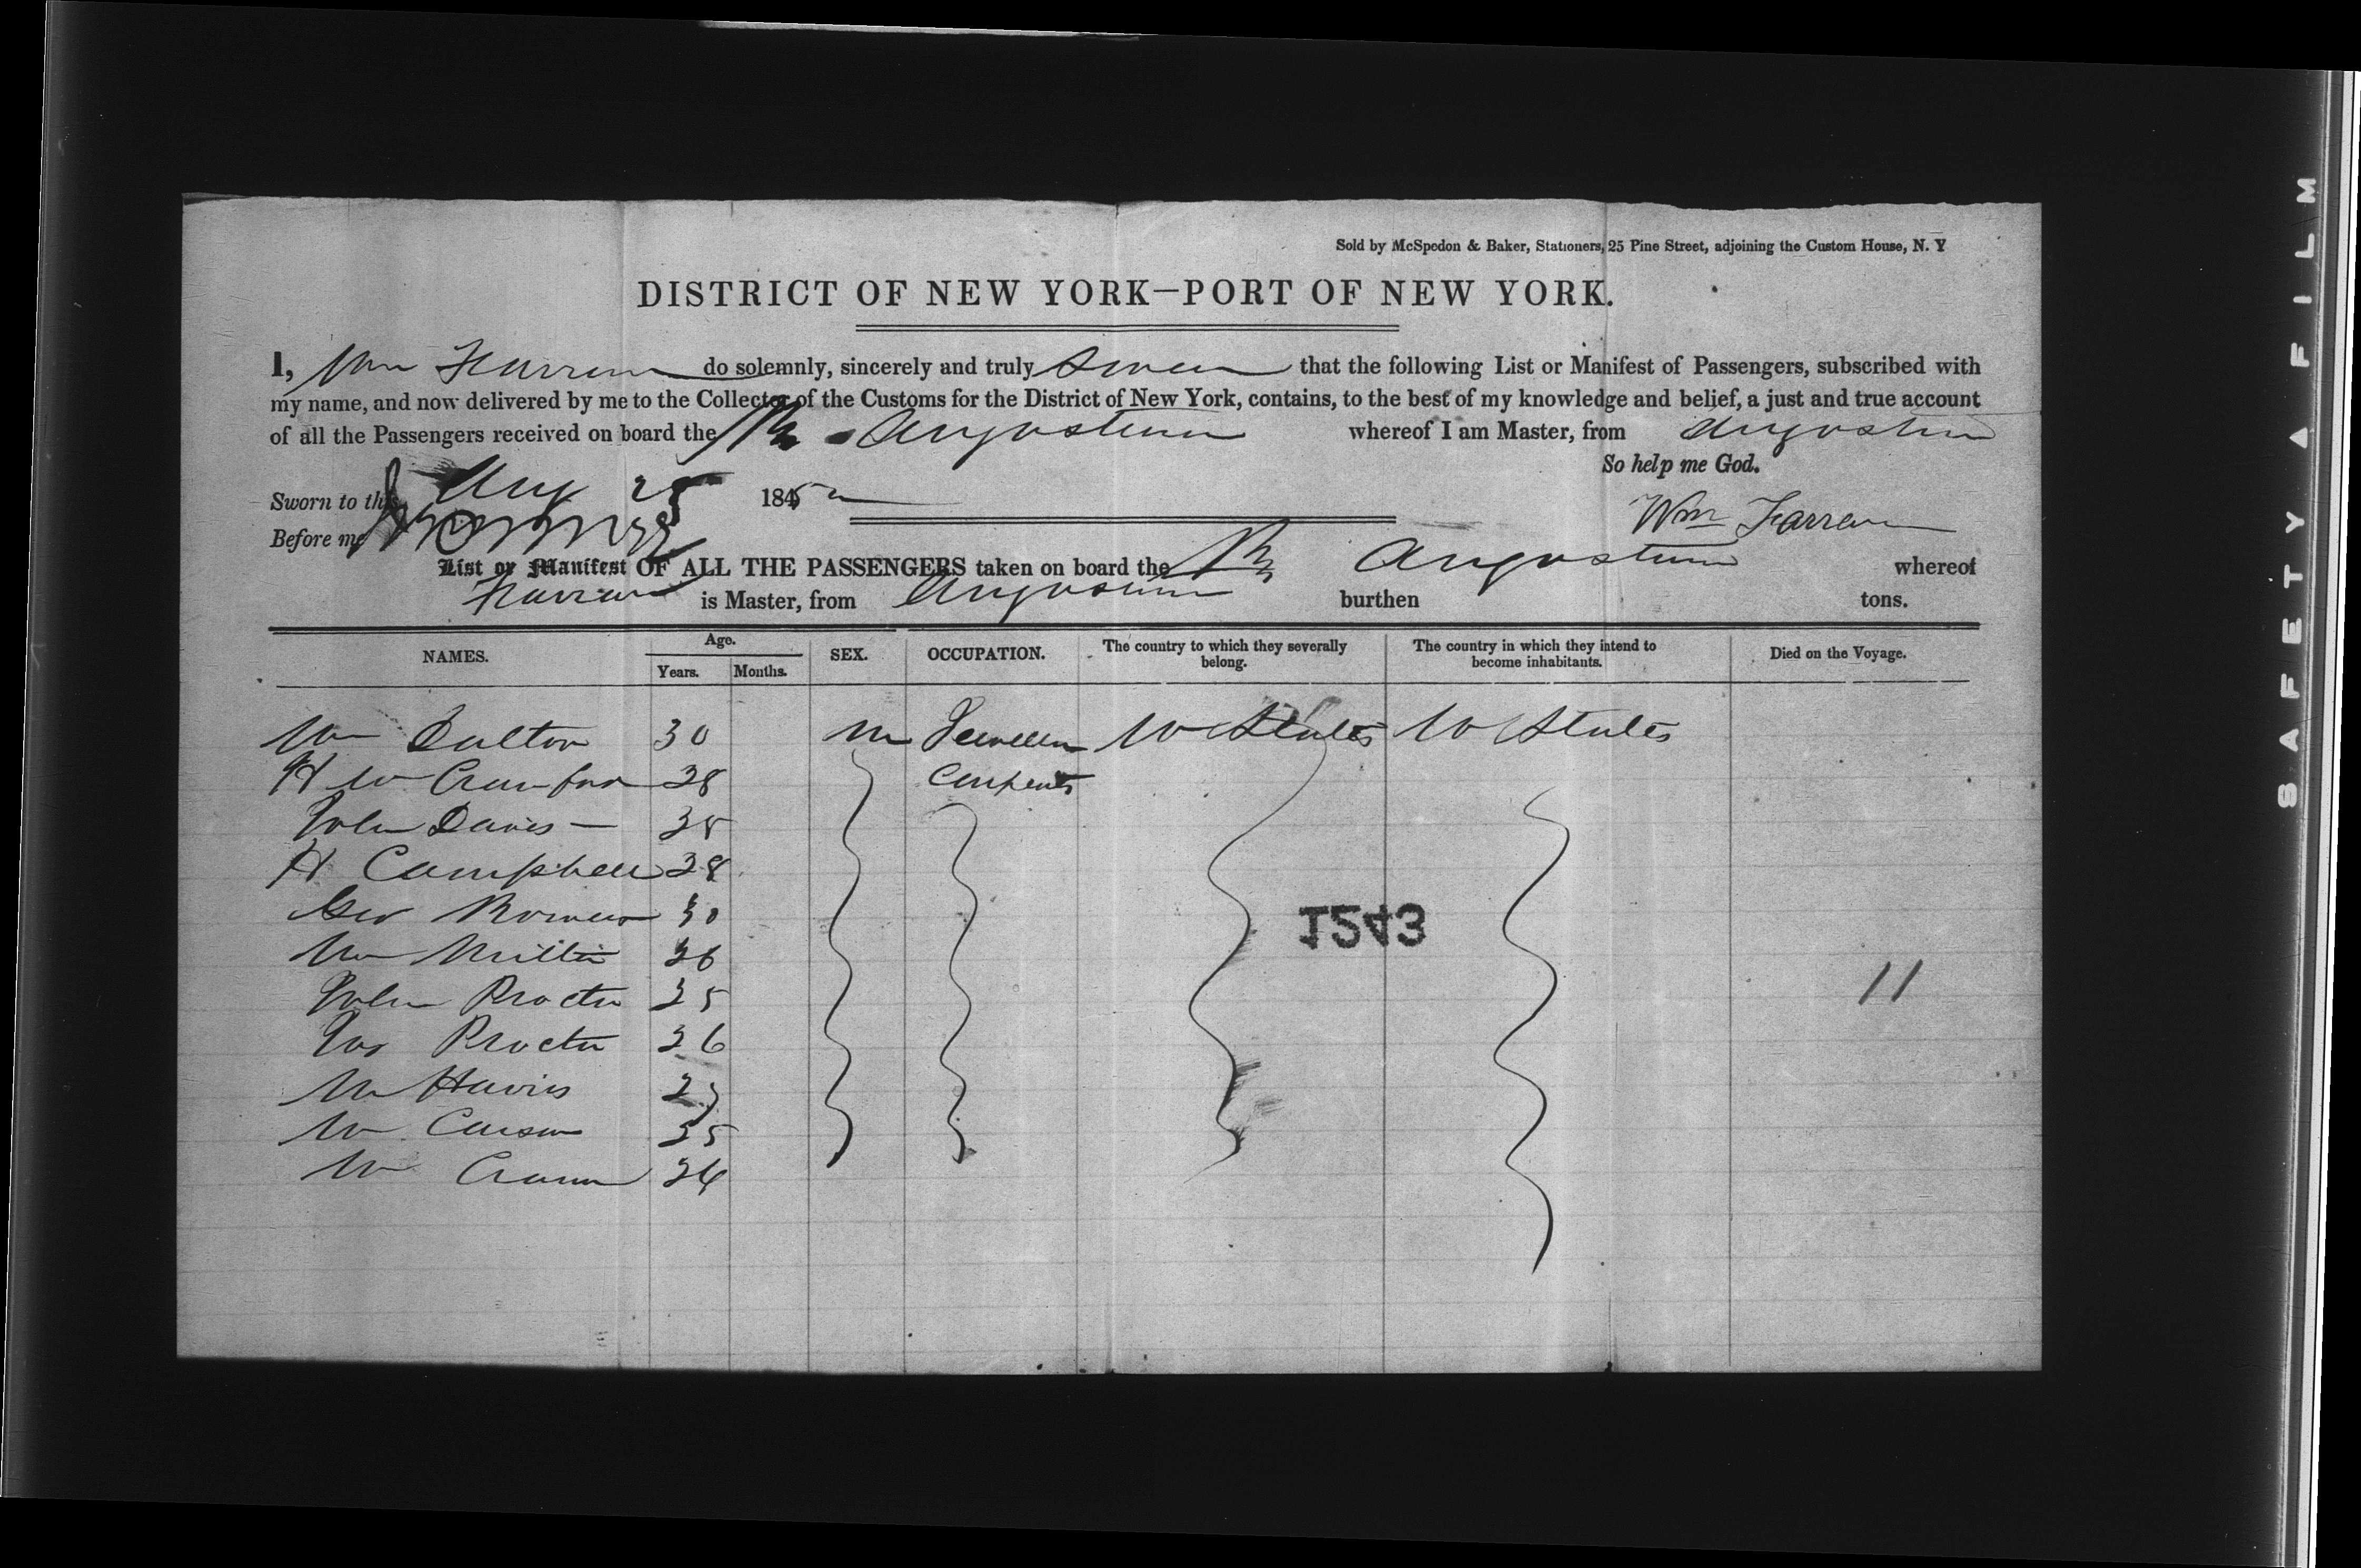 Sold by McSpedon & Baker, Stationers, 25 Pine Street, adjoining the Custom House, N. Y
DISTRICT OF NEW YORK—PORT OF NEW YORK.
I, Wm Farren do solemnly, sincerely and truly swear that the following List or Manifest of Passengers, subscribed with
my name, and now delivered by me to the Collector of the Customs for the District of New York, contains, to the best of my knowledge and belief, a just and true account
of all the Passengers received on board the Angostura whereof I am Master, from Angostura
So help me God.
Sworn to this Aug 25 1852
Wm Farren
Before me
List or Manifest OF ALL THE PASSENGERS taken on board the Angostura whereof
Farren is Master, from Angostura burthen tons.
NAMES. Age. Years. Months. SEX. OCCUPATION. The country to which they severally belong. The country in which they intend to become inhabitants. Died on the Voyage.
Wm Dalton 30 m U States U States
H W Crawford 28 Carpenter
John Davis — 35
H Campbell 28
Geo 30
Wm Miller 36
John Procter 35
Jas Procter 36
Wm Harris
W Carson 35
W 26
1543
11
SAFETY A FILM